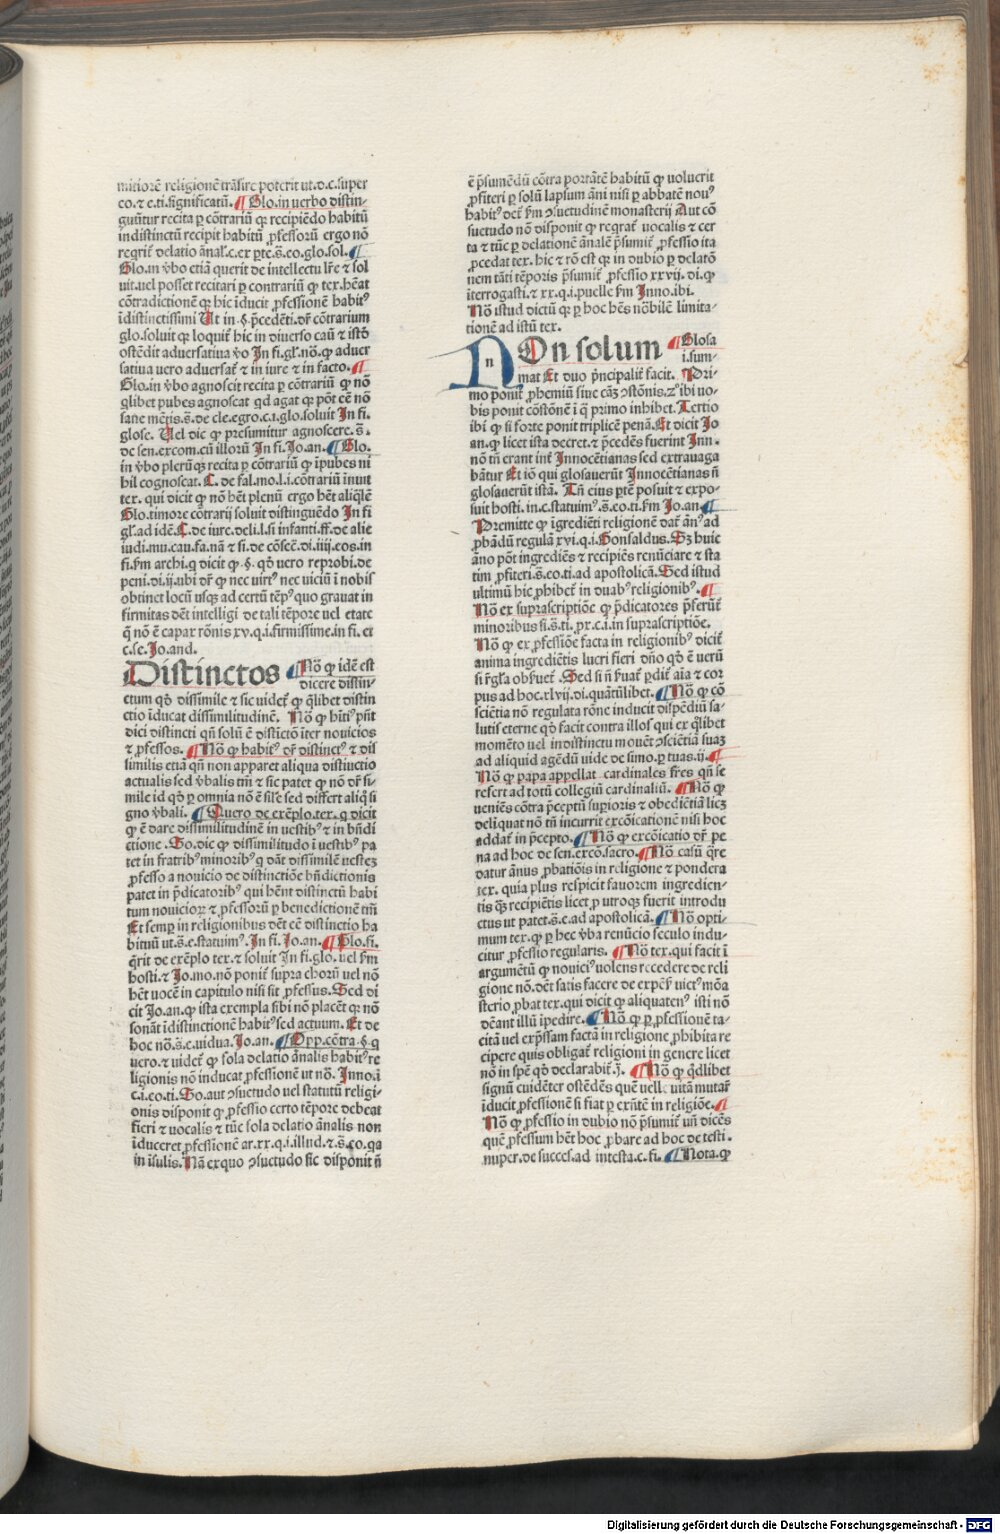 mitiorē religionē trāsire poterit ut.d.c.super
co.⁊ e.ti.significatū. ¶ Glo.in uerbo distin-
guūtur recita p̲ cōtrariū ꝙ recipiēdo habitū
indistinctū recipit habitū ꝓfessorū ergo nō
regrit̄ delatio ānal̓.c.ex p̲te.s̄.eo.glo.sol. ¶
Glo.in v̄bo etiā querit de intellectu lr̄e ⁊ sol
uit.uel posset recitari p̲ contrariū ꝙ tex.hēat
cōtradictionē ꝙ hic īducit ꝓfessionē habitꝰ
īdistinctissimi Ut in .§.p̄cedēti.dr̄ cōtrarium
glo.soluit ꝙ loquit̄ hic in diuerso casu ⁊ istd
ostēdit aduersatiua v̄o In fi.gl̓.nō.ꝙ aduer
satiua uero aduersat̄ ⁊ in iure ⁊ in facto. ¶
Glo.in v̄bo agnoscit recita p̲ cōtrariū ꝙ nō
qlibet pubes agnoscat qd agat ꝙ pōt eē nō
sane mētis.s̄.de cle.egro.c.i.glo.soluit In fi.
glose. Uel dic ꝙ presumitur agnoscere. s̄.
de sen.excom.cū illorū In fi.Jo.an. ¶ Glo.
in v̄bo plerūqꝫ recita p̲ cōtrariū ꝙ īpubes ni
hil cognoscat. C. de fal.mo.l.i.cōtrariū īnuit
tex. qui dicit ꝙ nō hēt plenū ergo hēt aliqlē
Glo.timore cōtrarij soluit distinguēdo In fi
gl̓.ad idē.C.de iure.deli.l.si infanti.ff.de alie
iudi.mu.cau.fa.nā ⁊ fi.de cōsec̄.di.iiij.eos.in
fi.f̄m archi.q dicit ꝙ .§. qd̄ uero reprobi.de
peni.di.ij.ubi dr̄ ꝙ nec uirtꝰ nec uiciū ī nobis
obtinet locū usqꝫ ad certū tēpꝰ quo grauat in
firmitas dēt intelligi de tali tēpore uel etate
q̄ nō ē capax rōnis xv.q.i.firmissime.in fi. et
c.se.Jo.and.
Distinctos ¶ Nō ꝙ idē est
dicere distin-
ctum qd̄ dissimile ⁊ sic uidet̄ ꝙ q̄libet distin
ctio īducat dissimilitudinē. Nō ꝙ hn̄tꝰ pn̄t
dici distincti qn̄ solū ē distictō iter nouicios
⁊ ꝓfessos. ¶ Nō ꝙ habitꝰ dr̄ distinctꝰ ⁊ dis
similis etiā qn̄ non apparet aliqua distiuctio
actualis sed v̄balis tm̄ ⁊ sic patet ꝙ nō dr̄ si-
mile id qd̄ p̲ omnia nō ē sile sed differt aliq̄ si
gno v̄bali. ¶ Quero de exēplo.tex.q dicit
ꝙ ē dare dissimilitudinē in uestibꝰ ⁊ in bn̄di
ctione .So.dic ꝙ dissimilitudo ī uestibꝰ pa
tet in fratribꝰ minoribꝰ q dāt dissimilē uesteꝫ
ꝓfesso a nouicio de distinctiōe bn̄dictionis
patet in p̄dicatoribꝰ qui hēnt distinctū habi
tum nouicioꝝ ⁊ ꝓfessorū p̲ benedictionē tm̄
Et semp̲ in religionibus dēt eē distinctio ha
bituū ut.s̄.e.statuimꝰ.In fi. Jo.an. ¶ Glo.fi.
q̄rit de exēplo tex.⁊ soluit In fi.glo. uel f̄m
hosti.⁊ Jo.mo.nō ponit̄ supra chorū uel nō
hēt uocē in capitulo nisi sit ꝓfessus. Sed di
cit Jo.an.ꝙ ista exempla sibi nō placēt ꝙ nō
sonāt īdistinctionē habitꝰ sed actuum. Et de
hoc nō.s̄.e.uidua.Jo.an. ¶ Opp.cōtra.§.q
uero.⁊ uidet̄ ꝙ sola delatio ānalis habitꝰ re
ligionis nō inducat ꝓfessionē ut nō. Inno.ī
c.i.eo.ti.So.aut ɔsuetudo uel statutū religi-
onis disponit ꝙ ꝓfessio certo tēpore debeat
fieri ⁊ uocalis ⁊ tūc sola delatio ānalis non
īduceret ꝓfessionē ar.xx.q.i.illud.⁊.s̄.eo.qa
in īsulis.Nā exquo ɔsuetudo sic disponit n̄
ē p̄sumēdū cōtra portātē habitū ꝙ uoluerit
ꝓfiteri p̲ solū lapsum āni nisi p̲ abbatē nouꝰ
habitꝰ det̄ f̄m ɔsuetudinē monasterij Aut cō
suetudo nō disponit ꝙ regrat̄ uocalis ⁊ cer
ta ⁊ tūc p̲ delationē ānalē p̄sumit̄ ꝓfessio ita
ꝓcedat tex. hic ⁊ rō est ꝙ in dubio p̲ delatō
nem tāti tēporis p̄sumit̄ ꝓfessio xxvij. di.ꝙ
iterrogasti.⁊ xx.q.i.puelle f̄m Inno.ibi.
Nō istud dictū ꝙ p̲ hoc hēs nōbilē limita-
tionē ad istū tex.
NOn solum ¶ Glosa
i.sum-
mat Et duo p̄ncipalit̄ facit. Pri-
mo ponit̄ ꝓhemiū siue cāꝫ ɔstōnis.zꝰ ibi uo-
bis ponit cōstōnē ī q̄ primo inhibet. Tertio
ibi ꝙ si forte ponit triplicē penā.Et dicit Jo
an.ꝙ licet ista decret.⁊ p̄cedēs fuerint Inn.
nō tn̄ erant int̄ Innocētianas sed extrauaga
bātur Et iō qui glosauerūt Innocētianas n̄
glosauerūt istā. Tn̄ eius p̲tē posuit ⁊ expo-
suit hosti. in.c.statuimꝰ.s̄.eo.ti.f̄m Jo.an. ¶
Premitte ꝙ īgrediēti religionē dat̄ ānꝰ ad
ꝓbādū regulā xvi.q.i.Gonsaldus.Sꝫ huic
āno pōt ingrediēs ⁊ recipiēs renūciare ⁊ sta
tim ꝓfiteri.s̄.eo.ti.ad apostolicā. Sed istud
ultimū hic ꝓhibet̄ in duabꝰ religionibꝰ. ¶
Nō ex suprascriptiōe ꝙ p̄dicatores p̄ferūt̄
minoribus si.s̄.ti.pr.c.i.in suprascriptiōe.
Nō ꝙ ex ꝓfessiōe facta in religionibꝰ dicit̄
anima ingrediētis lucri fieri dn̄o qd̄ ē uerū
si r̄gl̓a obseruet̄. Sed si n̄ seruat̄ ꝑdit̄ aīa ⁊ cor
pus ad hoc.xlvij.di.quātūlibet. ¶ Nō ꝙ cō
sciētia nō regulata rōne inducit dispēdiū sa-
lutis eterne qd̄ facit contra illos qui ex q̄libet
momēto uel indistinctu mouēt ɔsciētiā suaꝫ
ad aliquid agēdū uide de simo.p̲ tuas.ij. ¶
Nō ꝙ papa appellat cardinales fr̄es qn̄ se
refert ad totū collegiū cardinaliū. ¶ Nō ꝙ
ueniēs cōtra p̄ceptū supioris ⁊ obediētiā licꝫ
deliquat nō tn̄ incurrit excōicationē nisi hoc
addat̄ in p̄cepto. ¶ Nō ꝙ excōicatio dr̄ pe
na ad hoc de sen.excō.sacro. ¶ Nō casū q̄re
datur ānus ꝓbatiōis in religione ⁊ pondera
tex. quia plus respicit fauorem ingredien-
tis q̄ꝫ recipiētis licet p̲ utroqꝫ fuerit introdu
ctus ut patet.s̄.e.ad apostolicā. ¶ Nō opti-
mum tex.ꝙ p̲ hec v̄ba renūcio seculo indu-
citur ꝓfessio regularis. ¶ Nō tex.qui facit ī
argumētū ꝙ nouiciꝰ uolens recedere de reli
gione nō.dēt satis facere de expēs̄ uictꝰ mōa
sterio ꝓbat tex.qui dicit ꝙ aliquatenꝰ isti nō
dēant illū īpedire. ¶ Nō ꝙ p̲ ꝓfessionē ta-
citā uel exp̄ssam factā in religione ꝓhibita re
cipere quis obligat̄ religioni in genere licet
nō in spē qd̄ declarabit̄.j̄. ¶ Nō ꝙ q̄dlibet
signū euidēter ostēdēs quē uelle uitā mutar̄
īducit ꝓfessionē si fiat p̲ exn̄tē in religiōe. ¶
Nō ꝙ ꝓfessio in dubio nō p̄sumit̄ un̄ dicēs
quē ꝓfessum hēt hoc ꝓbare ad hoc de testi.
nuper.de succes.ad intesta.c.fi. ¶ Nota.ꝙ
Digitalisierung gefördert durch die Deutsche Forschungsgemeinschaft - DFG